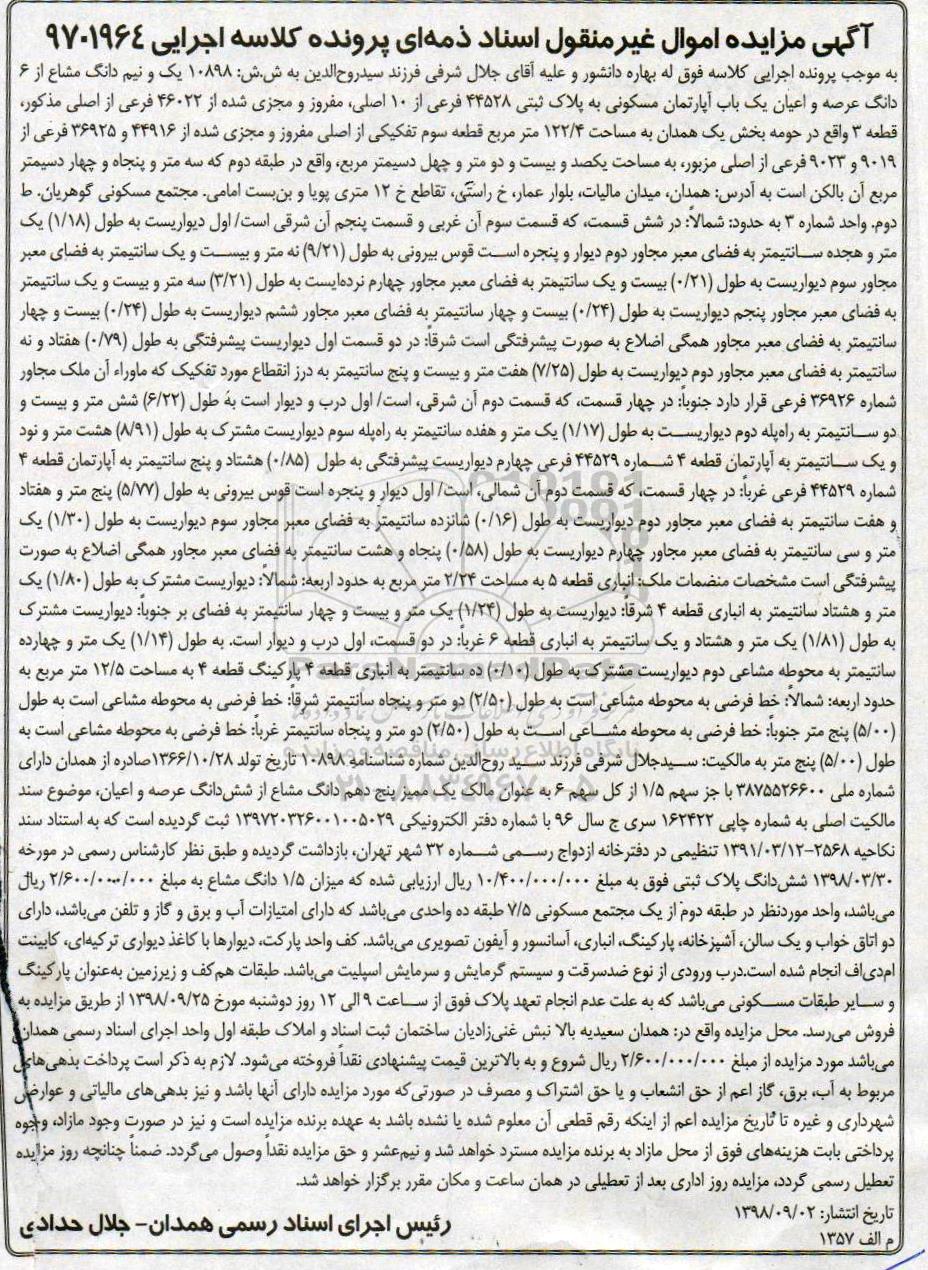 آگهی مزایده اموال غیرمنقول اسناد ذمه‌ای پرونده کلاسه اجرایی ۹۷۰۱۹۶۴
به موجب پرونده اجرایی کلاسه فوق له بهاره دانشور و علیه آقای جلال شرفی فرزند سیدروح‌الدین به ش.ش: ۱۰۸۹۸ یک و نیم دانگ مشاع از ۶
دانگ عرصه و اعیان یک باب آپارتمان مسکونی به پلاک ثبتی ۴۴۵۲۸ فرعی از ۱۰ اصلی، مفروز و مجزی شده از ۴۶۰۲۲ فرعی از اصلی مذکور،
قطعه ۳ واقع در حومه بخش یک همدان به مساحت ۱۲۲/۴ متر مربع قطعه سوم تفکیکی از اصلی مفروز و مجزی شده از ۴۴۹۱۶ و ۳۶۹۲۵ فرعی از
۹۰۱۹ و ۹۰۲۳ فرعی از اصلی مزبور، به مساحت یکصد و بیست و دو متر و چهل دسیمتر مربع، واقع در طبقه دوم که سه متر و پنجاه و چهار دسیمتر
مربع آن بالکن است به آدرس: همدان، میدان مالیات، بلوار عمار، خ راستی، تقاطع خ ۱۲ متری پویا و بن‌بست امامی. مجتمع مسکونی گوهریان. ط
دوم. واحد شماره ۳ به حدود: شمالاً: در شش قسمت، که قسمت سوم آن غربی و قسمت پنجم آن شرقی است/ اول دیواریست به طول (۱/۱۸) یک
متر و هجده سـانتیمتر به فضای معبر مجاور دوم دیوار و پنجره اسـت قوس بیرونی به طول (۹/۲۱) نه متر و بیسـت و یک سانتیمتر به فضای معبر
مجاور سوم دیواریست به طول (۰/۲۱) بیست و یک سانتیمتر به فضای معبر مجاور چهارم نرده‌ایست به طول (۳/۲۱) سه متر و بیست و یک سانتیمتر
به فضای معبر مجاور پنجم دیواریست به طول (۰/۲۴) بیست و چهار سانتیمتر به فضای معبر مجاور ششم دیواریست به طول (۰/۲۴) بیست و چهار
سانتیمتر به فضای معبر مجاور همگی اضلاع به صورت پیشرفتگی است شرقاً: در دو قسمت اول دیواریست پیشرفتگی به طول (۰/۷۹) هفتاد و نه
سانتیمتر به فضای معبر مجاور دوم دیواریست به طول (۷/۲۵) هفت متر و بیست و پنج سانتیمتر به درز انقطاع مورد تفکیک که ماوراء آن ملک مجاور
شماره ۳۶۹۲۶ فرعی قرار دارد جنوباً: در چهار قسمت، که قسمت دوم آن شرقی، است/ اول درب و دیوار است به طول (۶/۲۲) شش متر و بیست و
دو سـانتیمتر به راه‌پله دوم دیواریسـت به طول (۱/۱۷) یک متر و هفده سانتیمتر به راه‌پله سوم دیواریست مشترک به طول (۸/۹۱) هشت متر و نود
و یک سـانتیمتر به آپارتمان قطعه ۴ شـماره ۴۴۵۲۹ فرعی چهارم دیواریست پیشرفتگی به طول (۰/۸۵) هشتاد و پنج سانتیمتر به آپارتمان قطعه ۴
شماره ۴۴۵۲۹ فرعی غرباً: در چهار قسمت، که قسمت دوم آن شمالی، است/ اول دیوار و پنجره است قوس بیرونی به طول (۵/۷۷) پنج متر و هفتاد
و هفت سانتیمتر به فضای معبر مجاور دوم دیواریست به طول (۰/۱۶) شانزده سانتیمتر به فضای معبر مجاور سوم دیواریست به طول (۱/۳۰) یک
متر و سی سانتیمتر به فضای معبر مجاور چهارم دیواریست به طول (۰/۵۸) پنجاه و هشت سانتیمتر به فضای معبر مجاور همگی اضلاع به صورت
پیشرفتگی است مشخصات منضمات ملک: انباری قطعه ۵ به مساحت ۲/۲۴ متر مربع به حدود اربعه: شمالاً: دیواریست مشترک به طول (۱/۸۰) یک
متر و هشتاد سانتیمتر به انباری قطعه ۴ شرقاً: دیواریست به طول (۱/۲۴) یک متر و بیست و چهار سانتیمتر به فضای بر جنوباً: دیواریست مشترک
به طول (۱/۸۱) یک متر و هشتاد و یک سانتیمتر به انباری قطعه ۶ غرباً: در دو قسمت، اول درب و دیوار است. به طول (۱/۱۴) یک متر و چهارده
سانتیمتر به محوطه مشاعی دوم دیواریست مشترک به طول (۰/۱۰) ده سانتیمتر به انباری قطعه ۴ پارکینگ قطعه ۴ به مساحت ۱۲/۵ متر مربع به
حدود اربعه: شمالاً: خط فرضی به محوطه مشاعی است به طول (۲/۵۰) دو متر و پنجاه سانتیمتر شرقاً: خط فرضی به محوطه مشاعی است به طول
(۵/۰۰) پنج متر جنوباً: خط فرضی به محوطه مشـاعی اسـت به طول (۲/۵۰) دو متر و پنجاه سانتیمتر غرباً: خط فرضی به محوطه مشاعی است به
طول (۵/۰۰) پنج متر به مالکیت: سـیدجلال شرفی فرزند سـید روح‌الدین شماره شناسنامه ۱۰۸۹۸ تاریخ تولد ۱۳۶۶/۱۰/۲۸صادره از همدان دارای
شماره ملی ۳۸۷۵۵۲۶۶۰۰ با جز سهم ۱/۵ از کل سهم ۶ به عنوان مالک یک ممیز پنج دهم دانگ مشاع از شش‌دانگ عرصه و اعیان، موضوع سند
مالکیت اصلی به شماره چاپی ۱۶۲۴۲۲ سری ج سال ۹۶ با شماره دفتر الکترونیکی ۱۳۹۷۲۰۳۲۶۰۰۱۰۰۵۰۲۹ ثبت گردیده است که به استناد سند
نکاحیه ۲۵۶۸-۱۳۹۱/۰۳/۱۲ تنظیمی در دفترخانه ازدواج رسـمی شـماره ۳۲ شهر تهران، بازداشت گردیده و طبق نظر کارشناس رسمی در مورخه
۱۳۹۸/۰۳/۳۰ شش‌دانگ پلاک ثبتی فوق به مبلغ ۱۰/۴۰۰/۰۰۰/۰۰۰ ریال ارزیابی شده که میزان ۱/۵ دانگ مشاع به مبلغ ۲/۶۰۰/۰۰۰/۰۰۰ ریال
می‌باشد، واحد موردنظر در طبقه دوم از یک مجتمع مسکونی ۷/۵ طبقه ده واحدی می‌باشد که دارای امتیازات آب و برق و گاز و تلفن می‌باشد، دارای
دو اتاق خواب و یک سالن، آشپزخانه، پارکینگ، انباری، آسانسور و آیفون تصویری می‌باشد. کف واحد پارکت، دیوارها با کاغذ دیواری ترکیه‌ای، کابینت
ام‌دی‌اف انجام شده است.درب ورودی از نوع ضدسرقت و سیستم گرمایش و سرمایش اسپلیت می‌باشد. طبقات هم‌کف و زیرزمین به‌عنوان پارکینگ
و سـایر طبقات مسـکونی می‌باشد که به علت عدم انجام تعهد پلاک فوق از سـاعت ۹ الی ۱۲ روز دوشنبه مورخ ۱۳۹۸/۰۹/۲۵ از طریق مزایده به
فروش می‌رسد. محل مزایده واقع در: همدان سعیدیه بالا نبش غنی‌زادیان ساختمان ثبت اسناد و املاک طبقه اول واحد اجرای اسناد رسمی همدان
می‌باشد مورد مزایده از مبلغ ۲/۶۰۰/۰۰۰/۰۰۰ ریال شروع و به بالاترین قیمت پیشنهادی نقداً فروخته می‌شود. لازم به ذکر است پرداخت بدهی‌های
مربوط به آب، برق، گاز اعم از حق انشعاب و یا حق اشتراک و مصرف در صورتی‌که مورد مزایده دارای آنها باشد و نیز بدهی‌های مالیاتی و عوارض
شهرداری و غیره تا تاریخ مزایده اعم از اینکه رقم قطعی آن معلوم شده یا نشده باشد به عهده برنده مزایده است و نیز در صورت وجود مازاد، وجوه
پرداختی بابت هزینه‌های فوق از محل مازاد به برنده مزایده مسترد خواهد شد و نیم‌عشر و حق مزایده نقداً وصول می‌گردد. ضمناً چنانچه روز مزایده
تعطیل رسمی گردد، مزایده روز اداری بعد از تعطیلی در همان ساعت و مکان مقرر برگزار خواهد شد.
تاریخ انتشار: ۱۳۹۸/۰۹/۰۲
رئیس اجرای اسناد رسمی همدان- جلال حدادی
م الف ۱۳۵۷
ParsNamadData
پایگاه اطلاع رسانی مناقصه و مزایده
۰۲۱-۸۸۳۴۹۶۷۰-۵